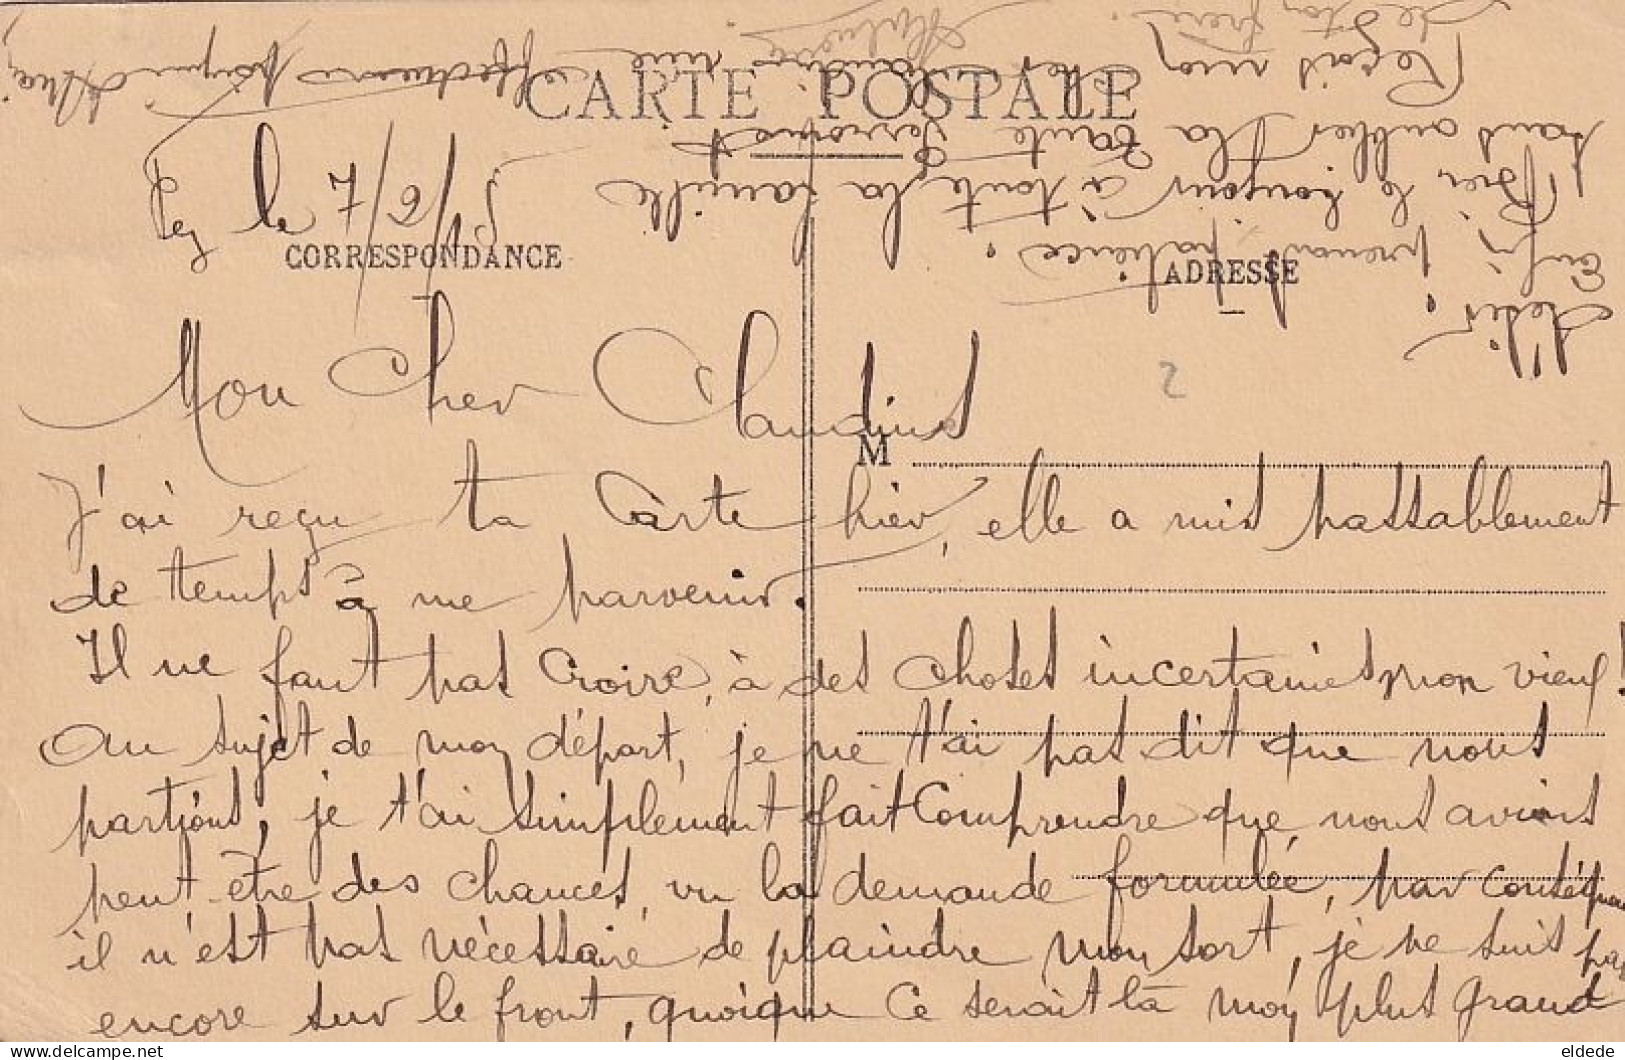 CARTE POSTALE
CORRESPONDANCE
ADRESSE
M
Fez le 7/6/15
Mon Cher Claudius
J'ai reçu ta Carte hier, elle a mis passablement
de temps à me parvenir.
Il ne faut pas croire, à des choses incertaines mon vieux!
Au sujet de mon départ, je ne t'ai pas dit que nous
partions, je t'ai simplement fait comprendre que nous avions
peut-être des chances, vu la demande formulée, par conséquent
il n'est pas nécessaire de plaindre mon sort, je ne suis pas
encore sur le front, quoique ce serait là mon plus grand
désir.
Enfin prenons patience.
Bien le bonjour à toute la famille
sans oublier la tante
Reçois mon
de ton frère
2
eldede